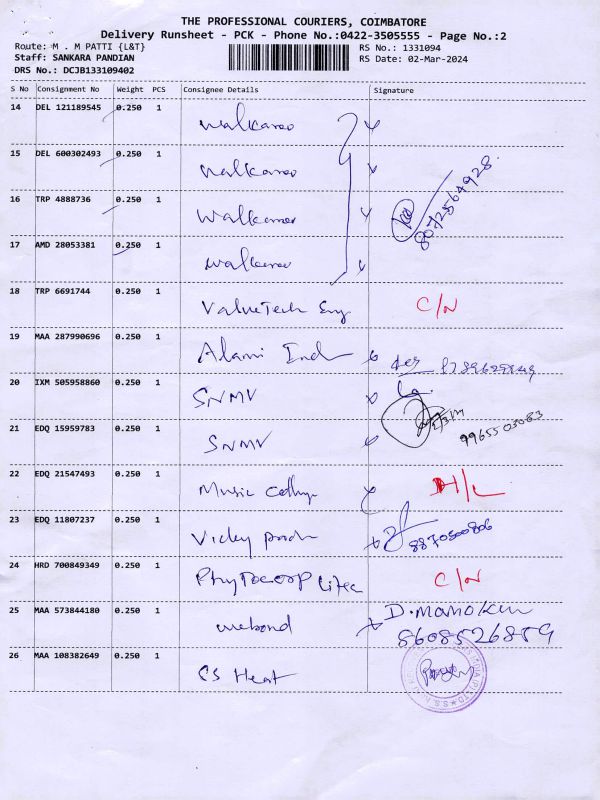 THE PROFESSIONAL COURIERS, COIMBATORE
Delivery Runsheet - PCK - Phone No.:0422-3505555 - Page No.:2
Route: M . M PATTI {L&T} RS No.: 1331094
Staff: SANKARA PANDIAN RS Date: 02-Mar-2024
DRS No.: DCJB133109402
S No Consignment No Weight PCS Consignee Details Signature
14 DEL 121189545 0.250 1 walkaroo
15 DEL 600302493 0.250 1 walkaroo
16 TRP 4888736 0.250 1 Walkaroo 8072564928
17 AMD 28053381 0.250 1 walkaroo
18 TRP 6691744 0.250 1 ValueTech Eng C/N
19 MAA 287990696 0.250 1 Alami Ind
20 IXM 505958860 0.250 1 SNMV
21 EDQ 15959783 0.250 1 SNMV 9965503083
22 EDQ 21547493 0.250 1 Music H/L
23 EDQ 11807237 0.250 1 Vicky 8870500806
24 HRD 700849349 0.250 1 Phytocorp C/N
25 MAA 573844180 0.250 1 webond D. Manoku
8608526859
26 MAA 108382649 0.250 1 CS Heat